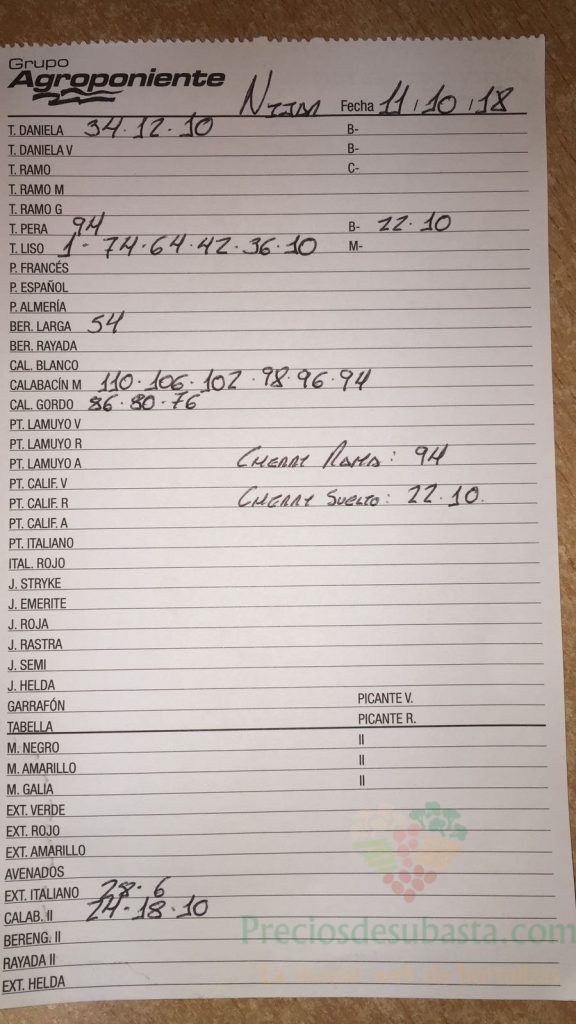 Grupo
Agroponiente NIJAR Fecha 11/10/18
T. DANIELA 34·12·10 B-
T. DANIELA V B-
T. RAMO C-
T. RAMO M
T. RAMO G
T. PERA 94 B- 22·10
T. LISO 1·74·64·42·36·10 M-
P. FRANCÉS
P. ESPAÑOL
P. ALMERÍA
BER. LARGA 54
BER. RAYADA
CAL. BLANCO
CALABACÍN M 110·106·102·98·96·94
CAL. GORDO 86·80·76
PT. LAMUYO V
PT. LAMUYO R
PT. LAMUYO A CHERRY RAMA: 94
PT. CALIF. V
PT. CALIF. R CHERRY SUELTO: 22·10.
PT. CALIF. A
PT. ITALIANO
ITAL. ROJO
J. STRYKE
J. EMERITE
J. ROJA
J. RASTRA
J. SEMI
J. HELDA
GARRAFÓN PICANTE V.
TABELLA PICANTE R.
M. NEGRO II
M. AMARILLO II
M. GALIA II
EXT. VERDE
EXT. ROJO
EXT. AMARILLO
AVENADOS
EXT. ITALIANO 28·6
CALAB. II 24·18·10
BERENG. II Preciosdesubasta.com
RAYADA II La mejor web de hortalizas
EXT. HELDA